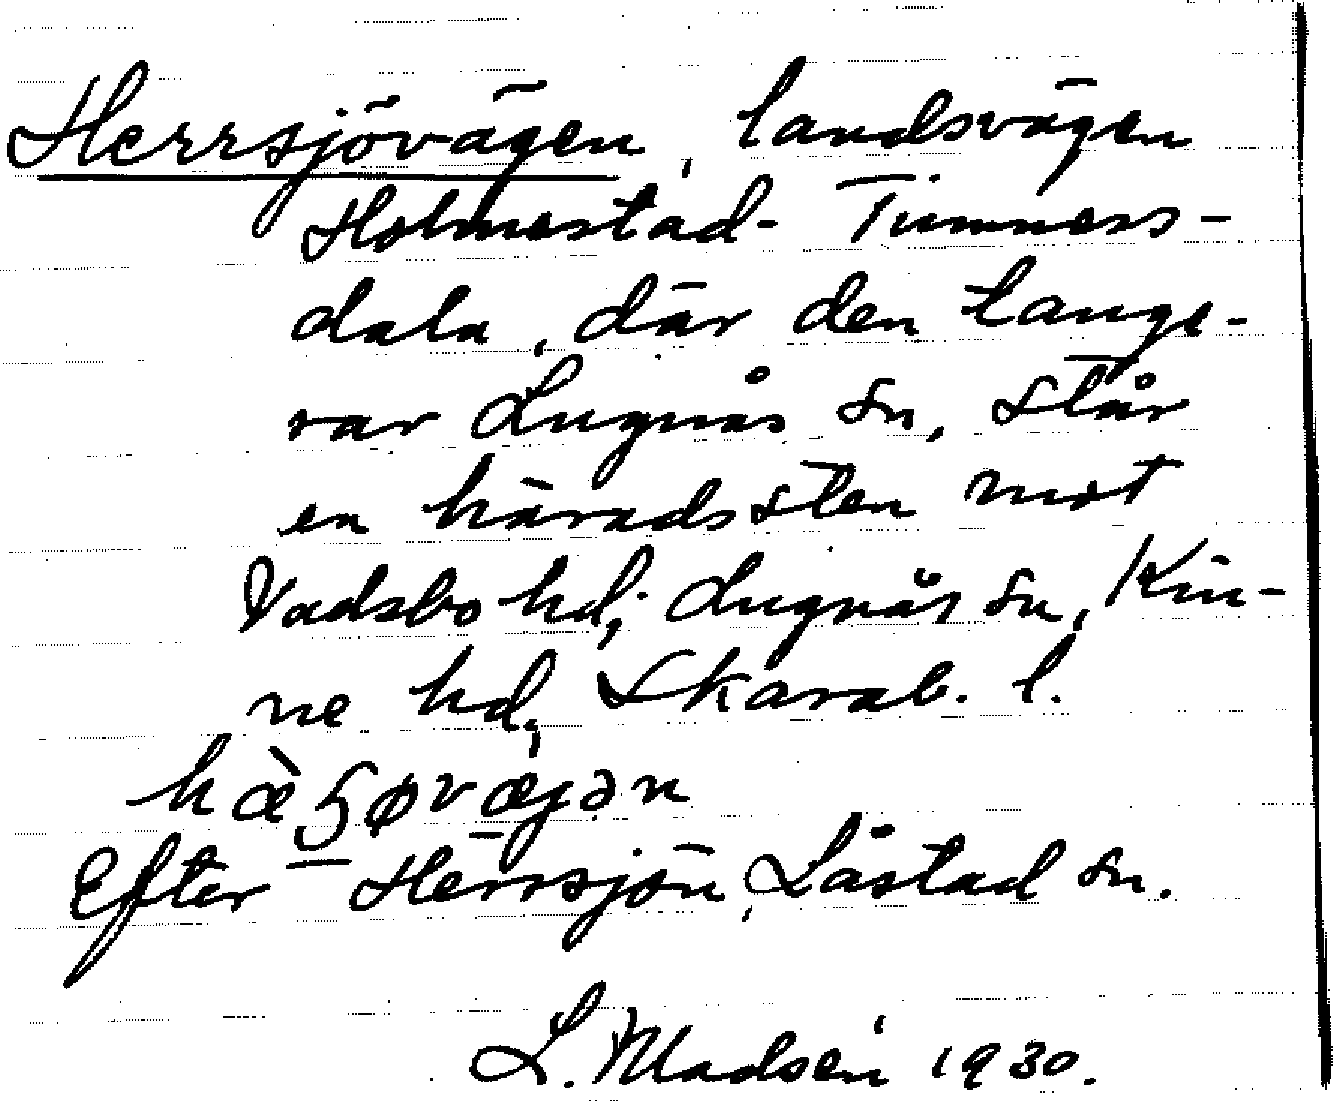 Herrsjövägen, landsvägen
Holmestad - Timmers-
dala, där den tange-
rar Lugnås sn, står
en häradssten mot
Vadsbo hd; Lugnås sn, Kin-
ne hd, Skarab. l.
hæ̀ʂøvæjən
Efter Herrsjön, Låstad sn.
L. Madsén 1930.